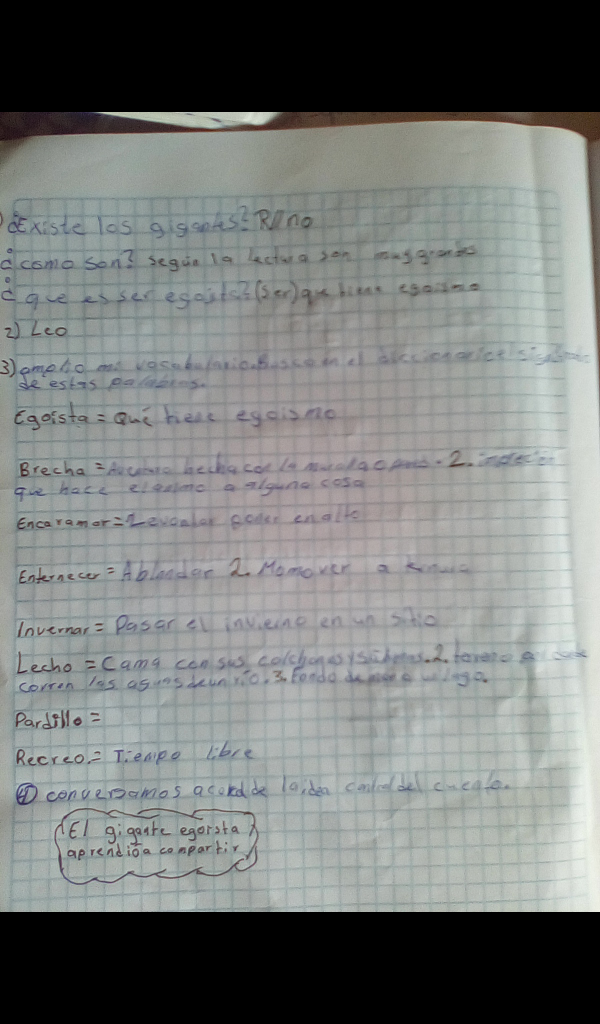 ¿Existe los gigantes? R// no
¿como son? según la lectura son muy grandes
¿ que es ser egoista? (Ser) que tiene egoismo
2) Leo
3) amplio mi vocabulario. Busco en el diccionario el significado
de estas palabras.
Egoísta = Qué tiene egoismo
Brecha = hecha con la muralla o pared. 2.
que hace el animo a alguna cosa
Encaramar = Levantar poner en alto
Enternecer = Ablandar 2. Momover a ternura
Invernar = Pasar el invierno en un sitio
Lecho = Cama con sus colchones y sabanas. 2. terreno
corren las aguas de un río. 3. Fondo de mar o un lago.
Pardillo =
Recreo. = Tiempo libre
4) conversamos de la idea central del cuento.
El gigante egoista
aprendio a compartir